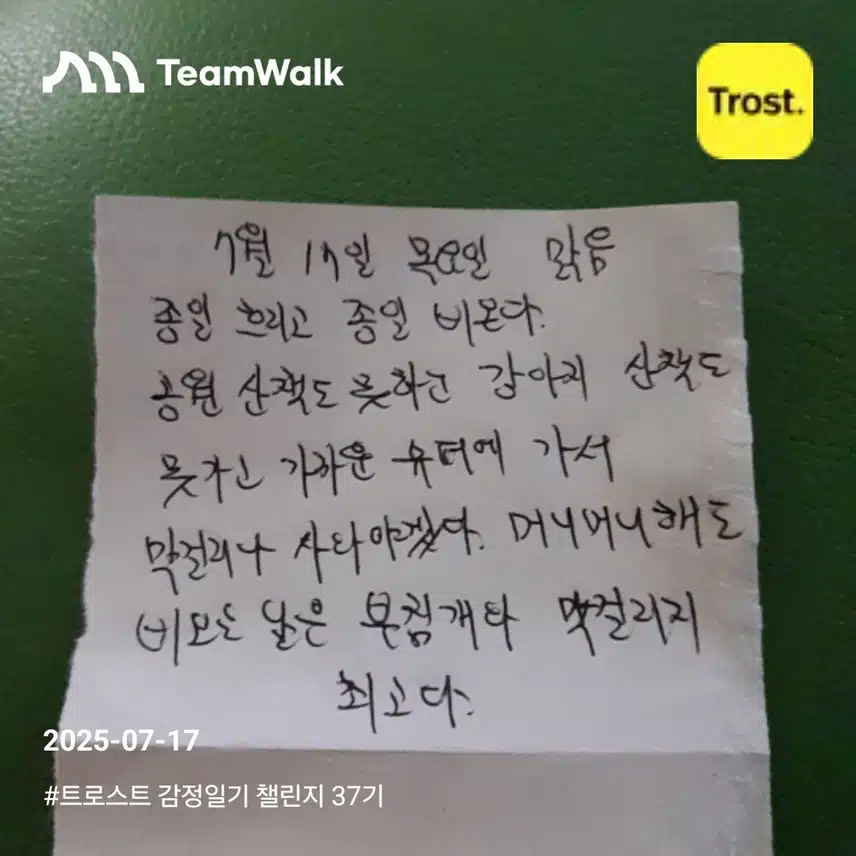 TeamWalk
Trost.
7월 17일 목요일 맑음
종일 흐리고 종일 비온다.
공원 산책도 못하는 강아지 산책도
못가고 가까운 슈퍼에 가서
막걸리나 사와야겠다. 머니머니해도
비오는 날은 부침개와 막걸리지
최고다.
2025-07-17
#트로스트 감정일기 챌린지 37기